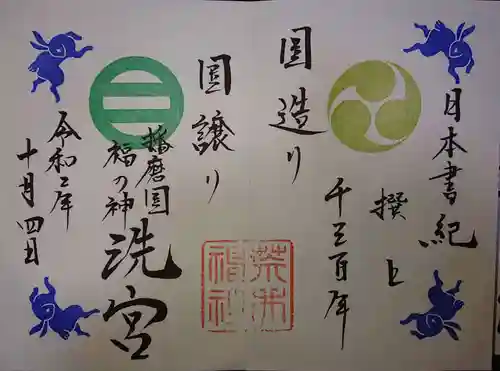 日本書紀
撰上
千三百年
国造り
国譲り
播磨国
福の神
洗宮
令和二年
十月四日
荒井神社